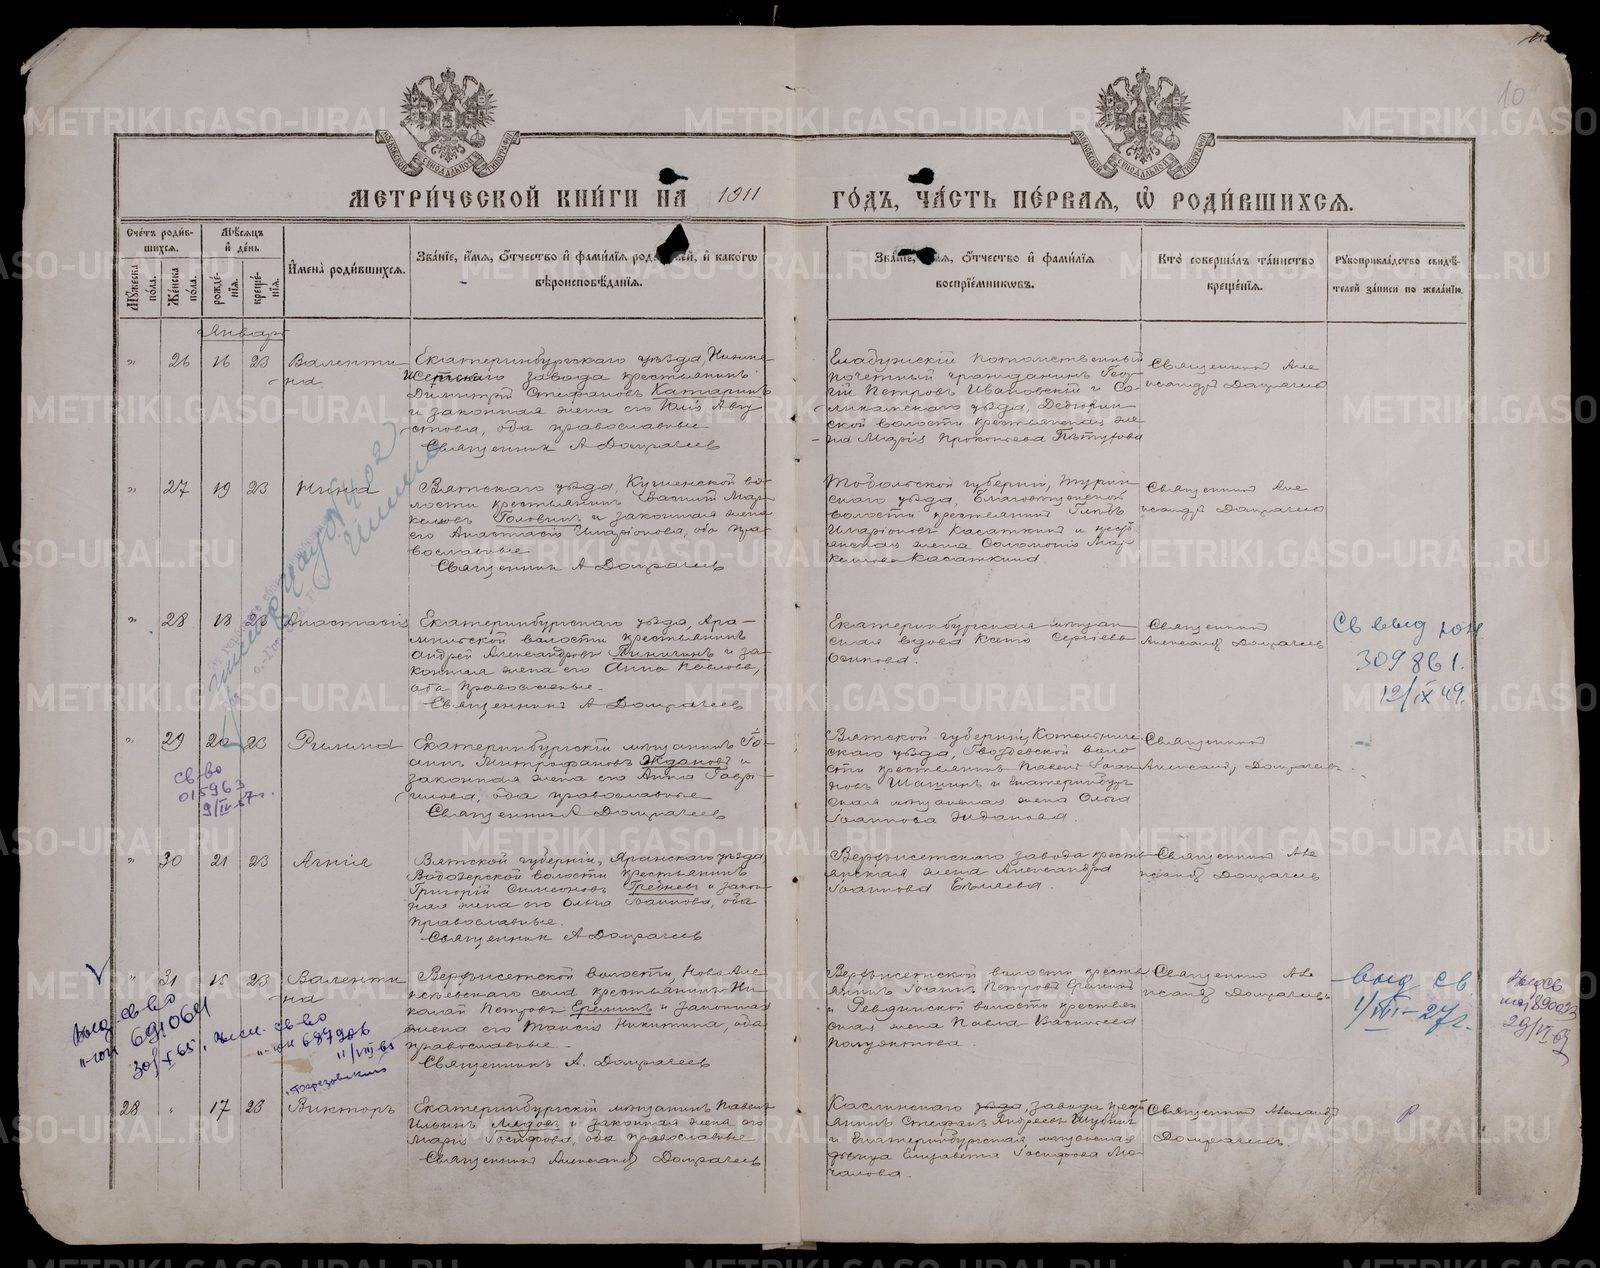 10
МЕТРИ́ЧЕСКОЙ КНИ́ГИ НА 1911 ГО́ДЪ, ЧА́СТЬ ПЕ́РВАЯ, Ѡ҆ РОДИ́ВШИХСЯ.
Сче́тъ роди́в-
шихся.
Му́жеска по́ла.
Же́нска по́ла.
Мѣ́сяцъ и де́нь
рожде́-нія.
креще́-нія.
И҆мена̀ роди́вшихся.
Зва́ніе, и҆́мя, ѻ҆́тчество и҆ фами́лія роди́телей, и҆ како́гѡ
вѣроисповѣ́данія.
Зва́ніе, и҆́мя, ѻ҆́тчество и҆ фами́лія
воспріе́мникѡвъ.
Кто̀ соверша́лъ та́инство
креще́нія.
Рꙋкоприкла́дство свидѣ́-
телей за́писи по жела́нію.
Январь
" 26 16 23 Валенти-
на
Екатеринбургскаго уѣзда, Нижне
Исетскаго завода крестьянинъ
Димитрій Стефановъ
и законная жена его Юлія Авгу
стова, оба православные
Священник А Домрачеев
Елабужскій потомственный
почетный гражданинъ Геор-
гій Петровъ Ивановскій и Со-
ликамскаго уѣзда, Дедюхин-
ской волости крестьянская же
на Марія Прокопьева Пѣтухова
Священникъ Але
ксандръ Домрачеев
" 27 19 23 Нина
Вятскаго уѣзда, Кушенской во
лости крестьянинъ Василій Мар
келовъ Головинъ и законная жена
его Анастасія Иларіонова, оба пра
вославные
Священник А Домрачеев
Тобольской губерніи, Турин
скаго уѣзда, Благовѣщенской
волости крестьянинъ Глѣбъ
Иларіоновъ Касаткинъ и крестъ
янская жена Соломонія Мар
келова Касаткина
Священникъ Але
ксандръ Домрачеев
" 28 18 23 Анастасія
Екатеринбургскаго уѣзда, Ара-
мильской волости крестьянинъ
Андрей Александровъ Пиньгинъ и за
конная жена его Анна Павлова,
оба православные.
Священникъ А Домрачеев
Екатеринбургская мѣщан
ская вдова Ксенія Сергіева
Осипова.
Священникъ
Александръ Домрачеев
Св выд ЮЯ
309861.
12/IX 49.
" 29 20 23 Римма
Екатеринбургскій мѣщанинъ Іо-
аннъ Митрофановъ Ждановъ и
законная жена его Анна Гаври-
илова, оба православные
Священникъ А Домрачеев
Вятской губерніи, Котельниче
скаго уѣзда, Гвоздевской воло
сти крестьянинъ Павелъ Іоан
новъ Шашинъ и Екатеринбург
ская мѣщанская жена Ольга
Іоаннова Жданова.
Священникъ
Александръ Домрачеевъ
св-во
015963
9/IV-57г.
" 30 21 23 Агнія
Вятской губерніи, Яранскаго уѣзда
Водозерской волости крестьянинъ
Григорій Симеоновъ Гребневъ и закон
ная жена его Ольга Іоаннова, оба
православные.
Священник А Домрачеев
Верхисетскаго завода кресть
янская жена Александра
Іоаннова Бѣляева.
Священникъ Але
ксандръ Домрачеев
" 31 18 23 Валенти
на
Верхисетской волости, Ново Але
ксѣевскаго села крестьянинъ Ни
колай Петровъ Ереминъ и законная
жена его Таисія Никитина, оба
православные.
Священникъ А. Домрачеев
Верхисетской волости кресть
янинъ Іоаннъ Петровъ Ереминъ
и Ревдинской волости крестьян
ская жена Павла Васильева
Полуэктова.
Священникъ Але
ксандръ Домрачеевъ
выд св.
1/III-27г.
Выд св-во
691064
30/X 65.
св-во
687206
11/VIII 65
28 " 17 23 Викторъ
Екатеринбургскій мѣщанинъ Павелъ
Ильинъ Лядовъ и законная жена его
Марія Іосифова, оба православные
Священникъ Александръ Домрачеев
Каслинскаго завода крестъ
янинъ Стефанъ Андреевъ Шубинъ
и Екатеринбургская мѣщанская
дѣвица Елизавета Іосифова Мо-
чалова.
Священникъ Александръ
Домрачеевъ.
METRIKI.GASO-URAL.RU